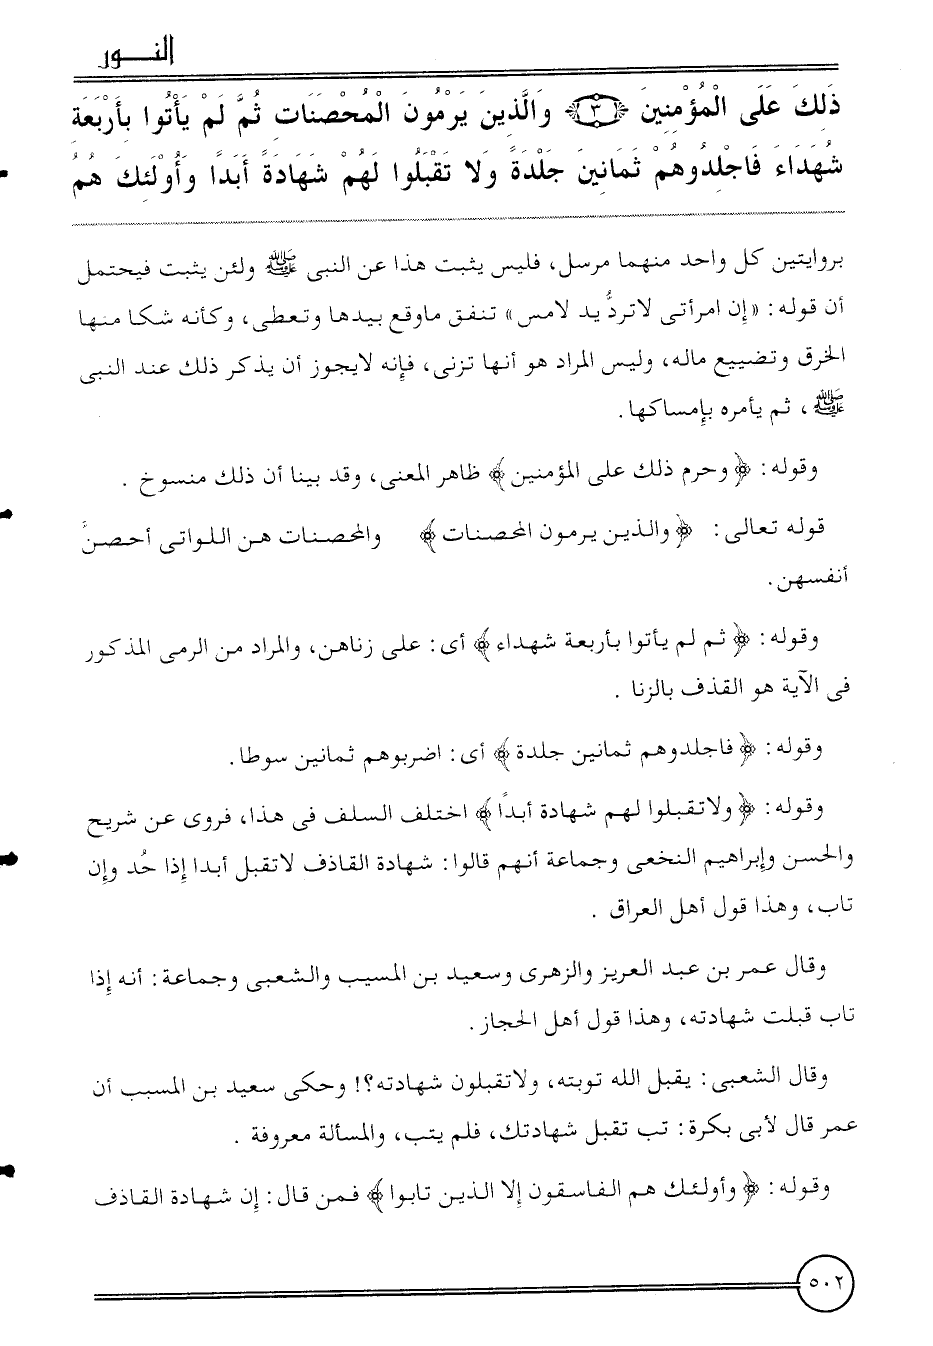 النـــور
ذَلِكَ عَلَى الْمُؤْمِنِينَ ﴿٣﴾ وَالَّذِينَ يَرْمُونَ الْمُحْصَنَاتِ ثُمَّ لَمْ يَأْتُوا بِأَرْبَعَةِ
شُهَدَاءَ فَاجْلِدُوهُمْ ثَمَانِينَ جَلْدَةً وَلا تَقْبَلُوا لَهُمْ شَهَادَةً أَبَدًا وَأُوْلَئِكَ هُمُ
بروايتين كل واحد منهما مرسل، فليس يثبت هذا عن النبى ﷺ ولئن يثبت فيحتمل
أن قوله: «إن امرأتى لاتردُّ يد لامس» تنفق ماوقع بيدها وتعطى، وكأنه شكا منها
الخرق وتضييع ماله، وليس المراد هو أنها تزنى، فإنه لايجوز أن يذكر ذلك عند النبى
ﷺ، ثم يأمره بإمساكها.
وقوله: ﴿وحرم ذلك على المؤمنين﴾ ظاهر المعنى، وقد بينا أن ذلك منسوخ .
قوله تعالى: ﴿والذين يرمون المحصنات﴾ والمحصنات هن اللواتى أحصنَّ
أنفسهن.
وقوله: ﴿ثم لم يأتوا بأربعة شهداء﴾ أى: على زناهن، والمراد من الرمى المذكور
فى الآية هو القذف بالزنا .
وقوله: ﴿فاجلدوهم ثمانين جلدة﴾ أى: اضربوهم ثمانين سوطا.
وقوله: ﴿ولاتقبلوا لهم شهادة أبدًا﴾ اختلف السلف فى هذا، فروى عن شريح
والحسن وإبراهيم النخعى وجماعة أنهم قالوا: شهادة القاذف لاتقبل أبدا إذا حُد وإن
تاب، وهذا قول أهل العراق .
وقال عمر بن عبد العزيز والزهرى وسعيد بن المسيب والشعبى وجماعة: أنه إذا
تاب قبلت شهادته، وهذا قول أهل الحجاز.
وقال الشعبى: يقبل الله توبته، ولاتقبلون شهادته؟! وحكى سعيد بن المسبب أن
عمر قال لأبى بكرة: تب تقبل شهادتك، فلم يتب، والمسألة معروفة .
وقوله: ﴿وأولئك هم الفاسقون إلا الذين تابوا﴾ فمن قال: إن شهادة القاذف
٥٠٢